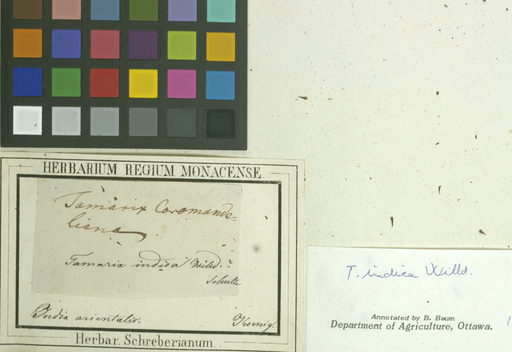 HERBARIUM REGIUM MONACENSE.
Tamarix Coromande-
liana
Tamarix indica Willd.?
Schult.
India orientalis. Koenig.
Herbar. Schreberianum.
T. indica Willd.
Annotated by B. Baum
Department of Agriculture, Ottawa.